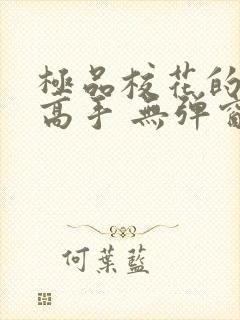 極品校花的
高手 無彈窗
何葉藍